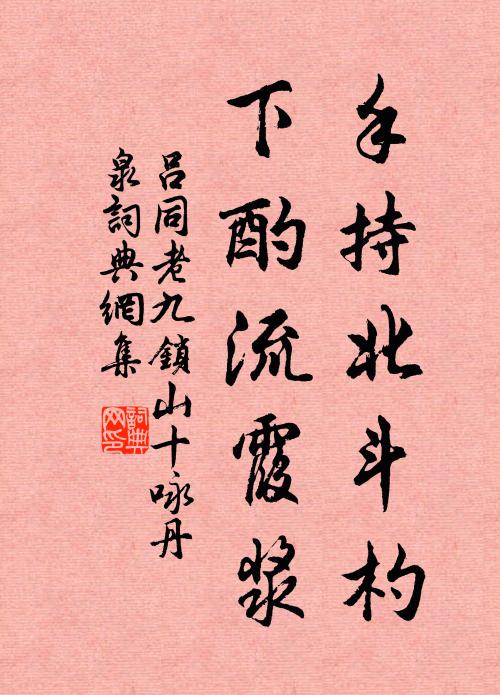 手持北斗杓
下酌流霞漿
吕同老九鎖山十咏丹
泉詞典網集
詞典
网印